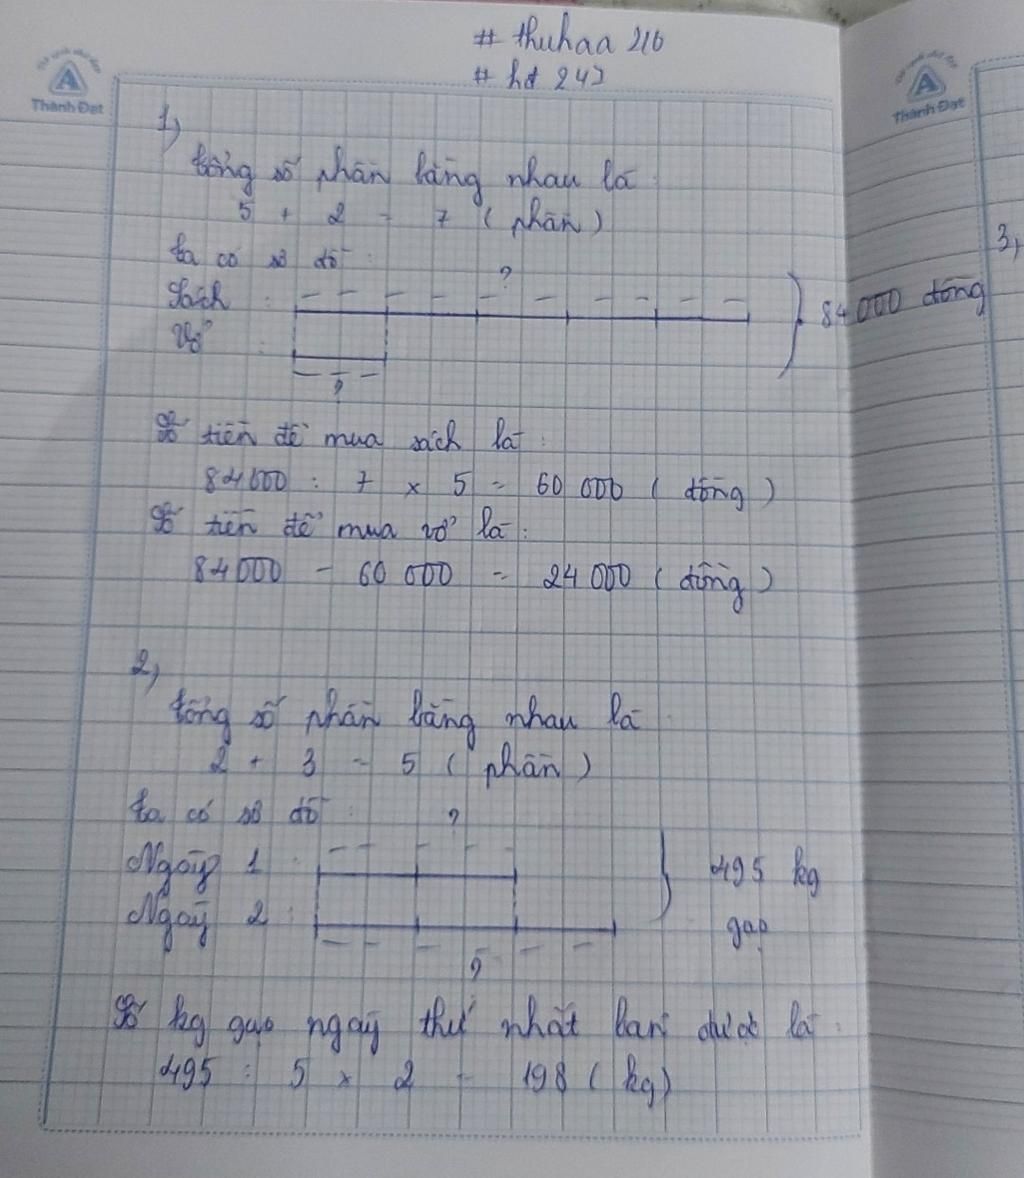 # thuhaa 216
# hđ 247
Thành Đạt
Thành Đạt
1,
tổng số phần bằng nhau là
5 + 2 = 7 ( phần )
ta có sơ đồ :
?
Sách :
84000 đồng
Vở :
?
Số tiền để mua sách là :
84000 : 7 x 5 = 60 000 ( đồng )
Số tiền để mua vở là :
84000 - 60 000 = 24 000 ( đồng )
2,
tổng số phần bằng nhau là
2 + 3 = 5 ( phần )
ta có sơ đồ :
?
Ngày 1 :
495 kg
Ngày 2 :
gạo
?
Số kg gạo ngày thứ nhất bán được là :
495 : 5 x 2 = 198 ( kg )
3,